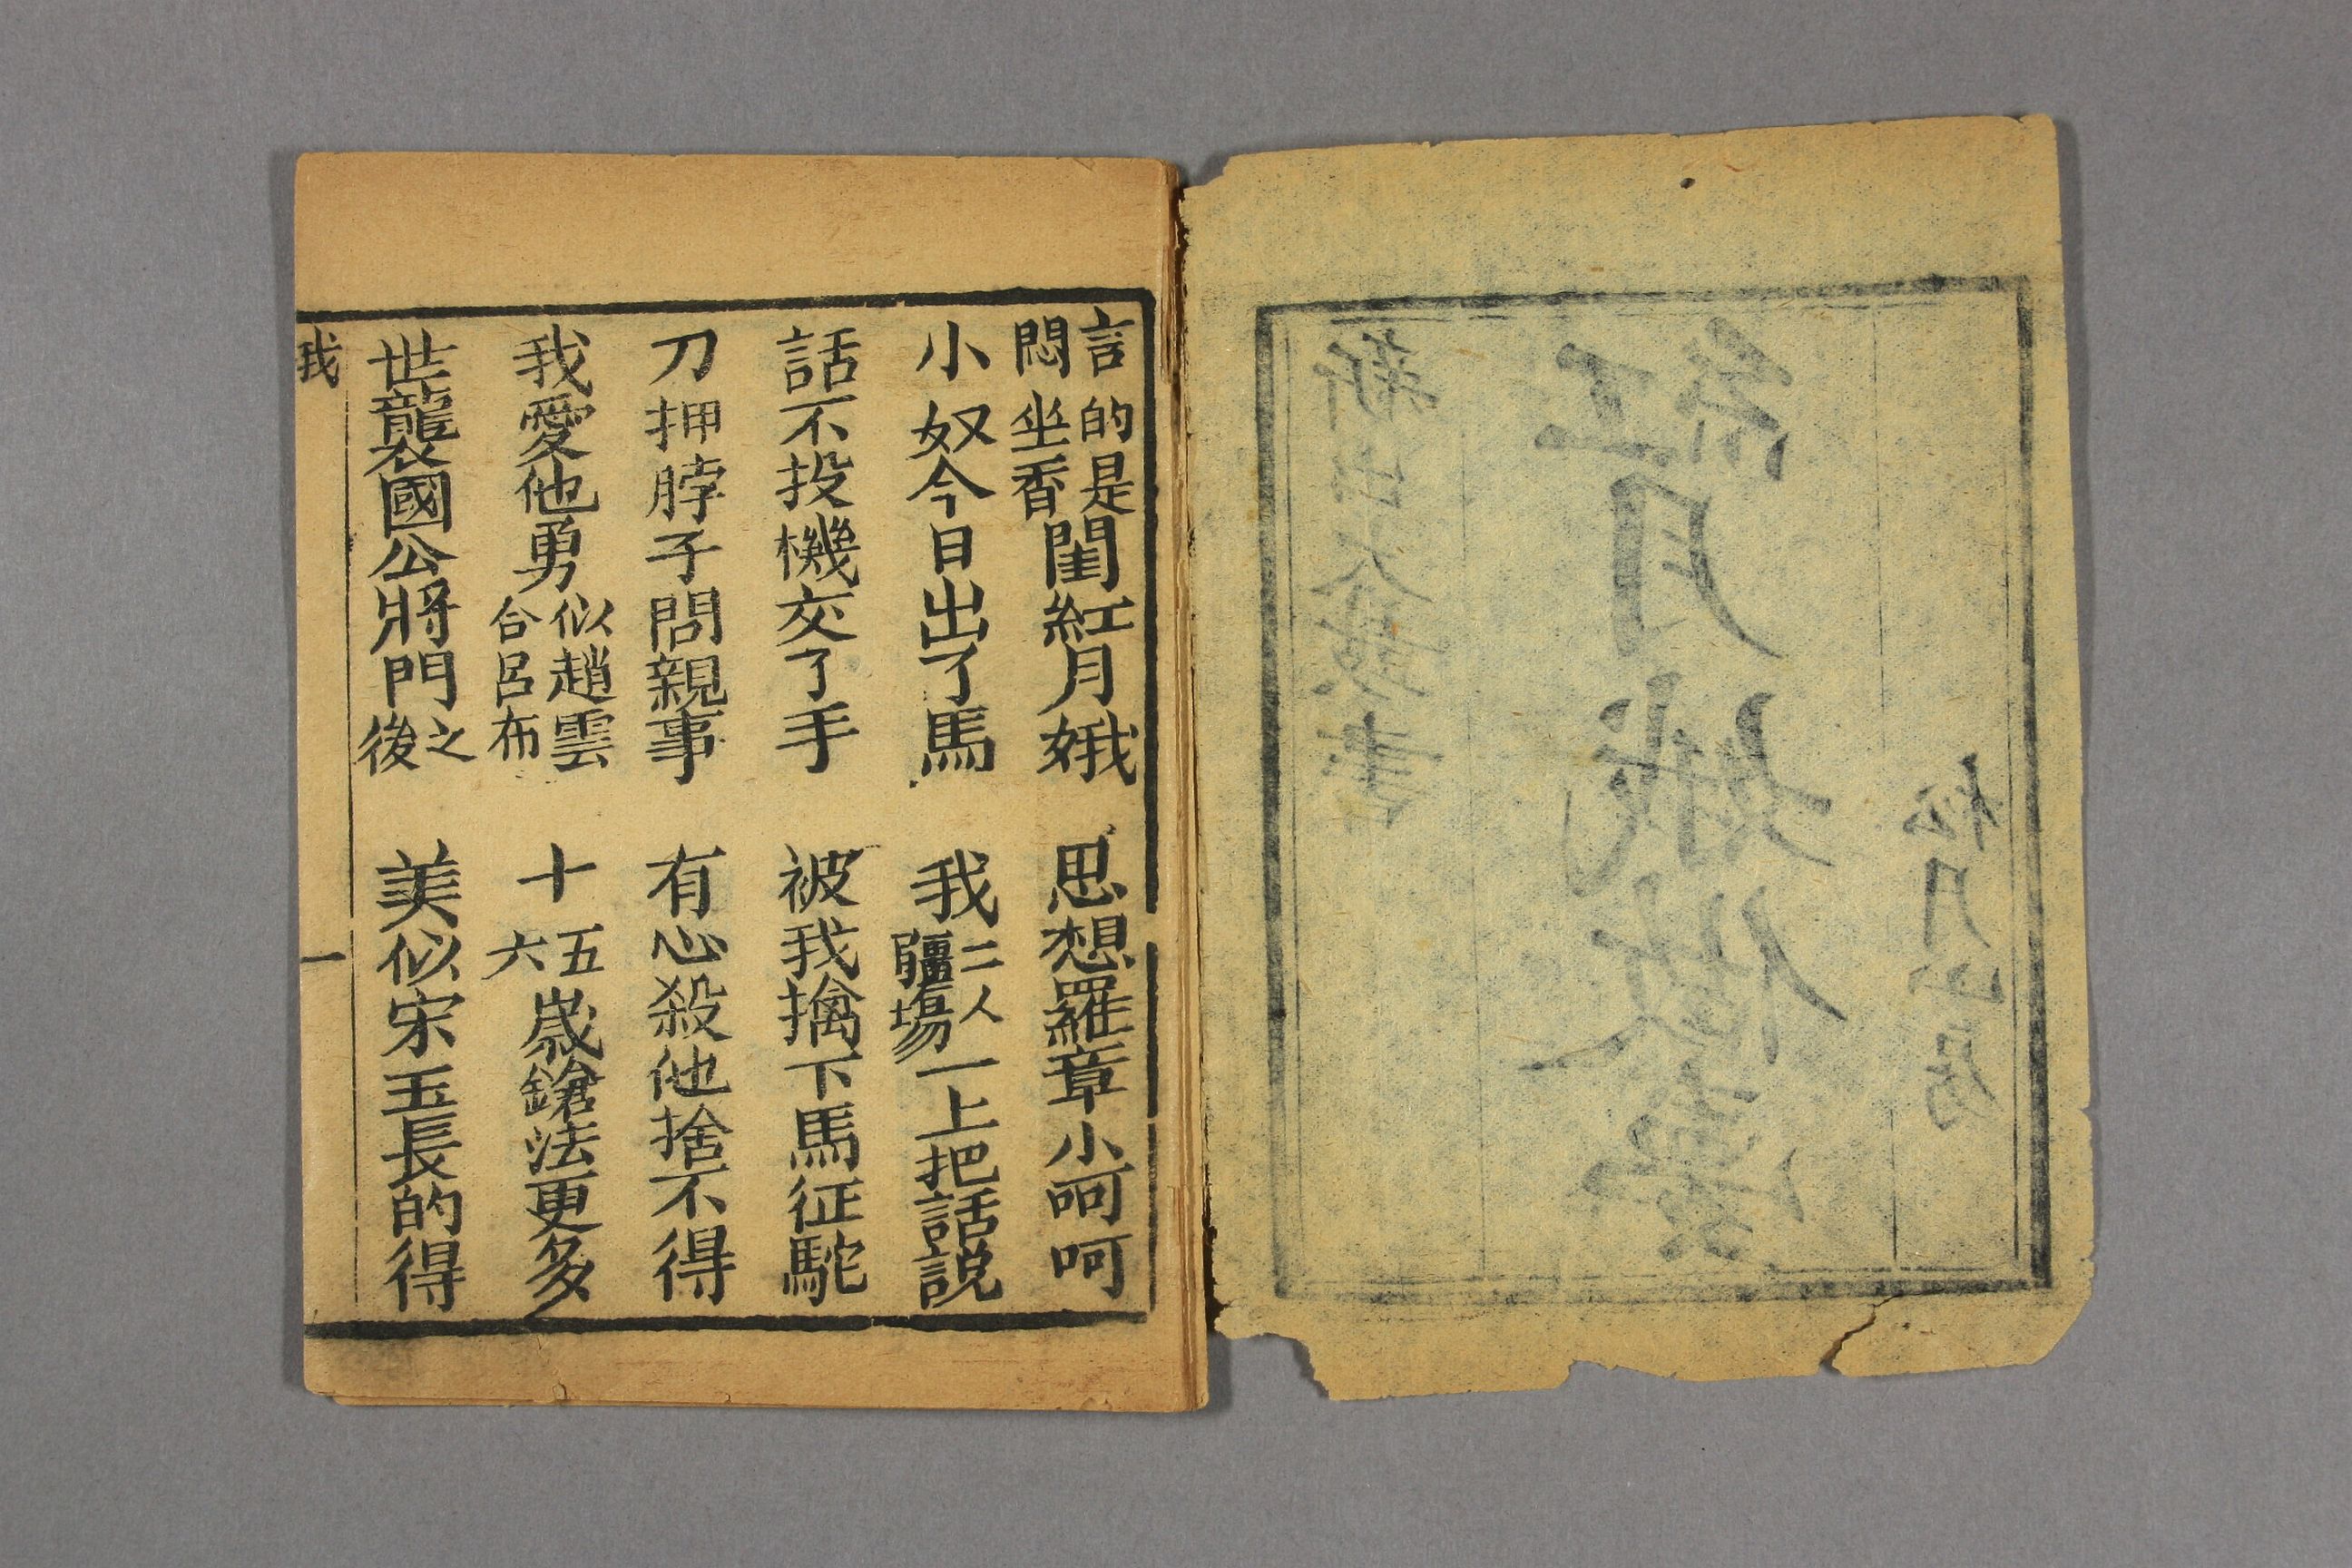 新出大鼓書
紅月娥做夢
松月山房
言的是悶坐香閨紅月娥 思想羅章小呵呵
小奴今日出了馬 我二人疆塲一上把話說
話不投機交了手 被我擒下馬征駝
刀押脖子問親事 有心殺他捨不得
我愛他勇似趙雲合呂布 十五六歲鎗法更多
世襲國公將門之後 美似宋玉長的得
我 一